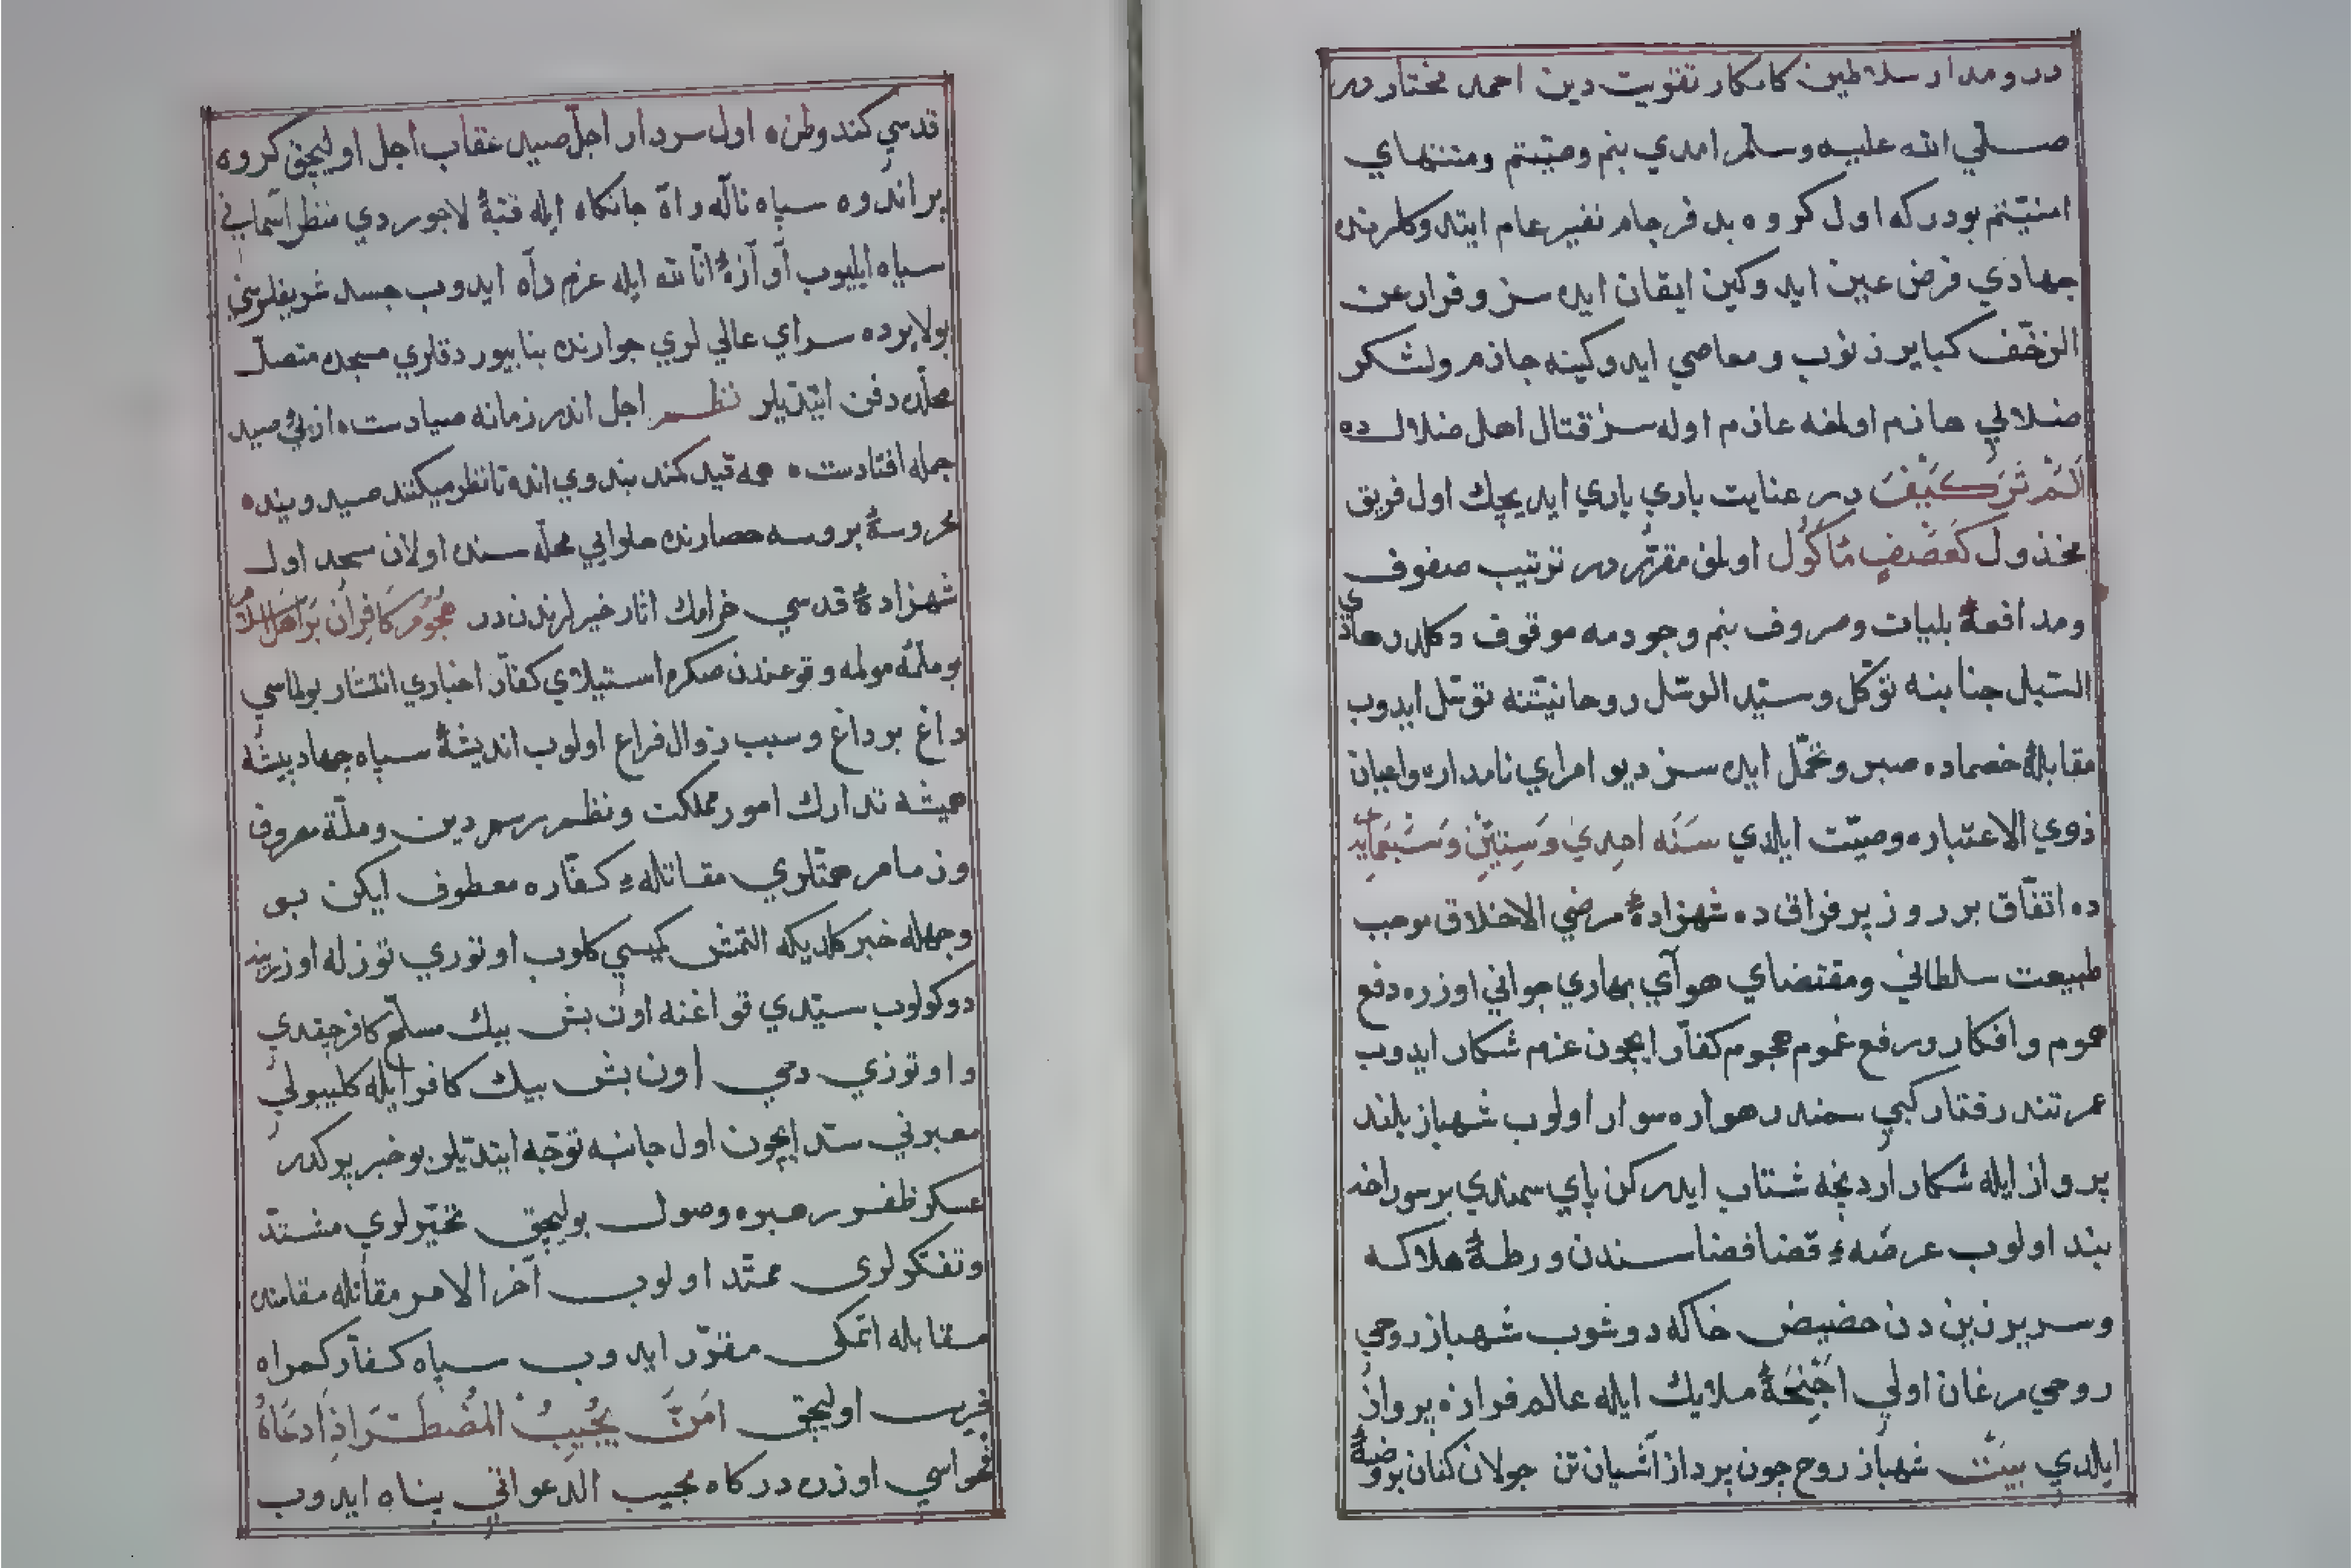 در ومدار سلاطين كامكار تقويت دين احمد مختار در
صلي الله عليه وسلم امدي بنم وصيتم ومنتهاي
امنيتم بودركه اول كروه بد فرجام نفير عام ايتدوكلرنده
جهادي فرض عين ايدوكين ايقان ايده سز وفرار عن
الزحف كباير ذنوب ومعاصي ايدوكينه جازم ولشكر
ضلالي هازم اولمغه عازم اوله سز قتال اهل ضلالده
اَلَمْ تَرَ كَيْفَ در عنايت باري ياري ايديجك اول فريق
مخذول كَعَصْفٍ مَأكُول اولمق مقرر در ترتيب صفوف
ومدافعهٔ بليات وصروف بنم وجودمه موقوف دكلدر هادي
السبل جنابنه توكل وسيد الرسل روحانيتنه توسل ايدوب
مقابلهٔ خصماده صبر وتحمل ايده سز ديو امراي نامدار واعيان
ذوي الاعتباره وصيت ايلدي سَنَه احدي وَسِتّين وَسَبعمايه
ده اتفاق بر روز پر فراق ده شهزادهٔ مرضي الاخلاق موجب
طبيعت سلطاني ومقتضاي هوآي بهاري جواني اوزره دفع
هموم وافكار ورفع غموم هجوم كفار ايچون عزم شكار ايدوب
عمر تند رفتار كبي سمند رهواره سوار اولوب شهباز بلند
پرواز ايله شكار اردنجه شتاب ايدركن پاي سمندي بر سوراخه
بند اولوب عرصهٔ قضا فضاسندن ورطهٔ هلاكه
وسرير زين دن حضيض خاكه دوشوب شهباز روحي
روحي مرغان اولي اَجْنِحَهٔ ملايك ايله عالم فرازه پرواز
ايلدي بيت شهباز روح چون پرداز آشيان تن جولان كنان بروضهٔ
قدسي كند وطن ه اول سردار اجل صيد عقاب اجل اوليجق كروه
پر اندوه سپاه ناله وآه جانكاه ايله قبهٔ لاجوردي منظر آسماني
سياه ايليوب آوازهٔ انا لله ايله عزم راه ايدوب جسد شريفلرني
بولايرده سراي عالي لري جوارنده بنا بيوردقلري مسجده متصل
محلده دفن ايتديلر نظم اجل اندر زمانه صيادست ه از پئ صيد
جمله افتادست ه همه قيد كمند بندوي اند ه تا نظر ميكنند صيد وبنده
محروسهٔ بروسه حصارنده حلوايي محله سنده اولان مسجد اول
شهزادهٔ قدسي خرامك اثار خيرلرندندر هجوم كافران بر اهل اسلام
بو ملمهٔ مولمه وقوعندن صكره استيلاي كفار اخباري انتشار بولماسي
داغ بر داغ وسبب زوال فراغ اولوب انديشهٔ سپاه جهاد پيشه
هميشه تدارك امور مملكت ونظم رسم دين وملة مصروف
وزمام همتلري مقاتلهٔ كفاره معطوف ايكن بو
وجهله خبر كلديكه التمش كيسي كلوب اوتوري توزله اوزرينه
دوكولوب سيدي قواغنه اون بش بيك مسلح كافر چيقدي
واوتوزي دخي اون بش بيك كافر ايله كليبولي
معبرني سد ايچون اول جانبه توجه ايتديلر بو خبر پر كدر
عسكر ظفر رهبره وصول بوليجق تحيرلري مشتد
وتفكرلرى ممتد اولوب آخر الامر مقاتله مقامنده
مقابله اتمكى مقرر ايدوب سپاه كفار كمراه
قريب اوليجق امَنْ يُجيبُ المُضْطَرّ اذا دعَاهُ
فحواسي اوزره دركاه مجيب الدعواتي پناه ايدوب